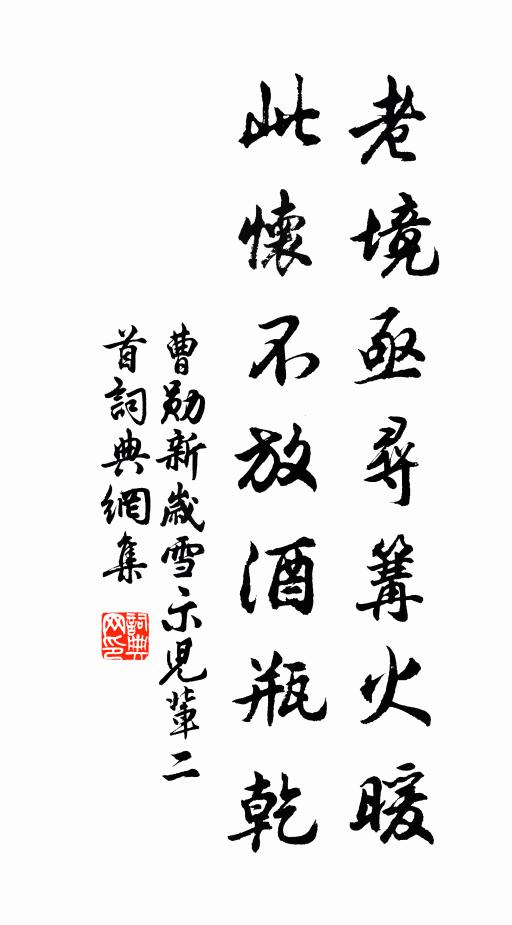 老境亟尋篝火暖
此懷不放酒瓶乾
曹勛新歲雪示兒輩二
首詞典網集
詞典
网印